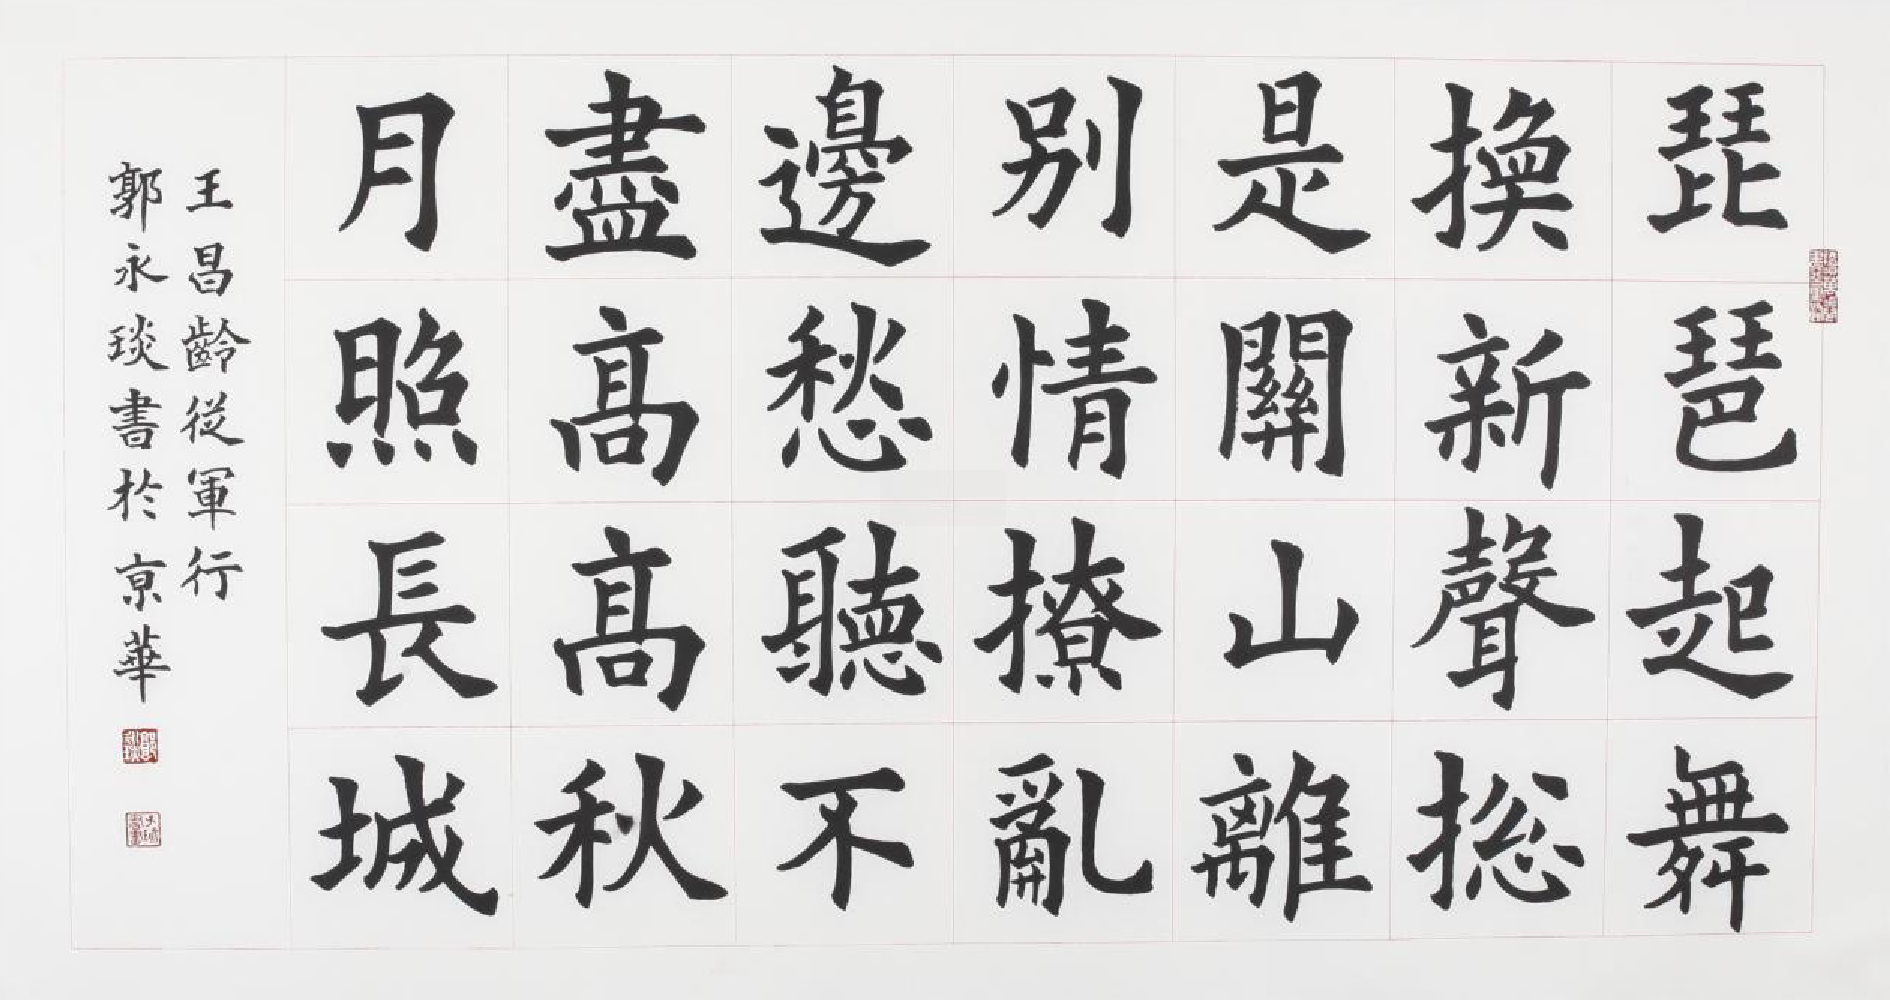 琵琶起舞
換新聲捴
是關山離
别情撩亂
邊愁聽不
盡髙髙秋
月照長城
王昌齡從軍行
郭永琰書於京華